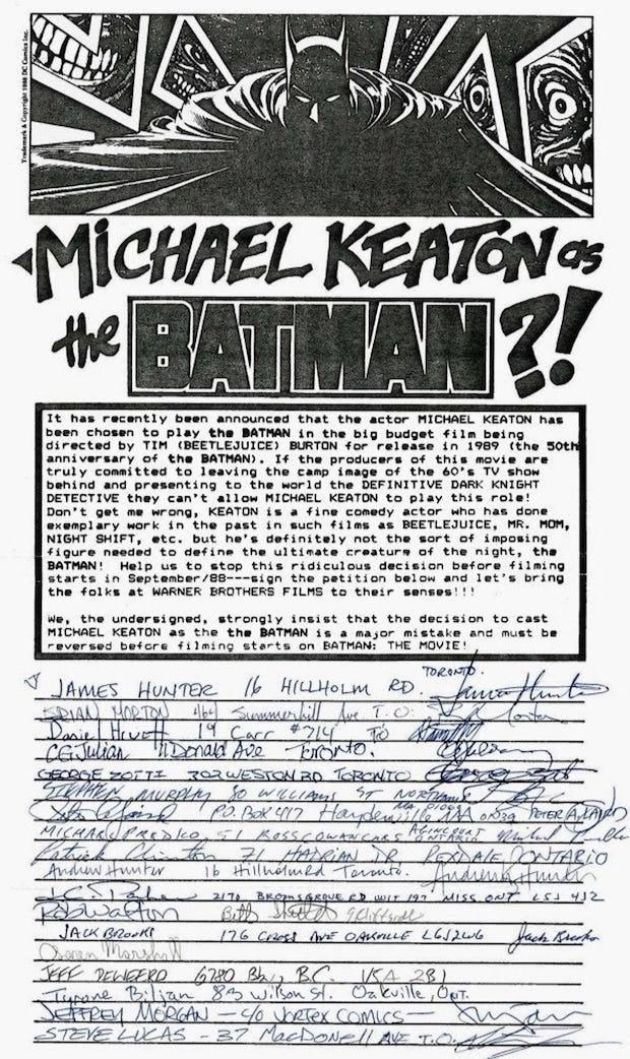 Trademark & Copyright 1988 DC Comics Inc.
MICHAEL KEATON as
the BATMAN?!
It has recently been announced that the actor MICHAEL KEATON has
been chosen to play the BATMAN in the big budget film being
directed by TIM (BEETLEJUICE) BURTON for release in 1989 (the 50th
anniversary of the BATMAN). If the producers of this movie are
truly committed to leaving the camp image of the 60's TV show
behind and presenting to the world the DEFINITIVE DARK KNIGHT
DETECTIVE they can't allow MICHAEL KEATON to play this role!
Don't get me wrong, KEATON is a fine comedy actor who has done
exemplary work in the past in such films as BEETLEJUICE, MR. MOM,
NIGHT SHIFT, etc. but he's definitely not the sort of imposing
figure needed to define the ultimate creature of the night, the
BATMAN! Help us to stop this ridiculous decision before filming
starts in September/88---sign the petition below and let's bring
the folks at WARNER BROTHERS FILMS to their senses!!!
We, the undersigned, strongly insist that the decision to cast
MICHAEL KEATON as the the BATMAN is a major mistake and must be
reversed before filming starts on BATMAN: THE MOVIE!
JAMES HUNTER 16 HILLHOLM RD. TORONTO. James Hunter
BRIAN MORTON Summerhill Ave T.O.
19 Carr #214 TO
CG Julian 11 Donald Ave Toronto.
GEORGE ZOTTI 302 WESTON RD TORONTO
STEPHEN MURPHY 30 WILLIAMS ST
P.O. BOX 417 Haydenville MA PETER A LAIRD
AGINCOURT ONTARIO
71 HADRIAN DR, REXDALE, ONTARIO
Andrew Hunter 16 Hillholm Rd Toronto. Andrew Hunter
2170 BROMSGROVE RD UNIT 197 MISS. ONT L5J 4J2
Rob Walton
JACK BROOKS 176 CROSS AVE OAKVILLE L6J2W6 Jack Brooks
Marshall
JEFF 6780 B.C.
Tyrone Biljan 83 Wilson St. Oakville, Ont.
JEFFREY MORGAN - c/o VORTEX COMICS -
STEVE LUCAS - 37 MACDONELL AVE T.O.